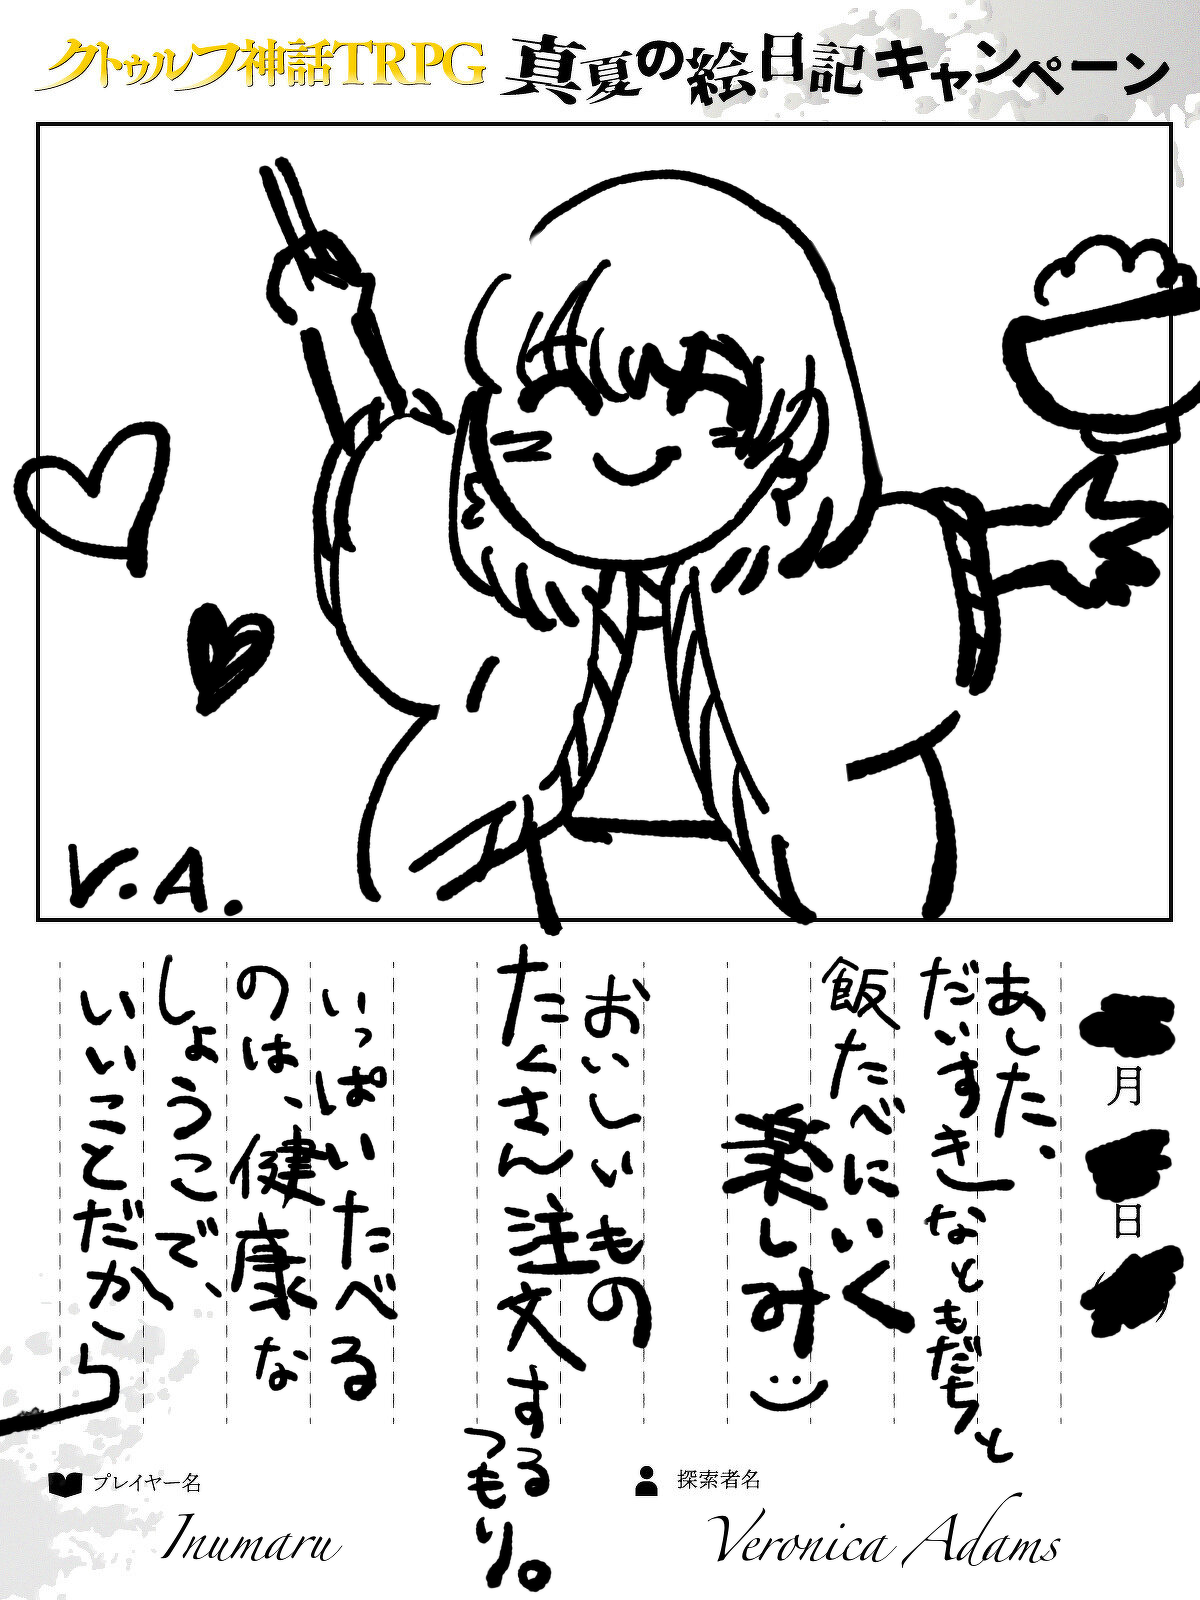 クトゥルフ神話TRPG 真夏の絵日記キャンペーン
V.A.
月
日
あした、
だいすきなともだちと
飯たべにいく
楽しみ
おいしいもの
たくさん注文する
つもり。
いっぱいたべる
のは、健康な
しょうこで、
いいことだから
プレイヤー名
Inumaru
探索者名
Veronica Adams